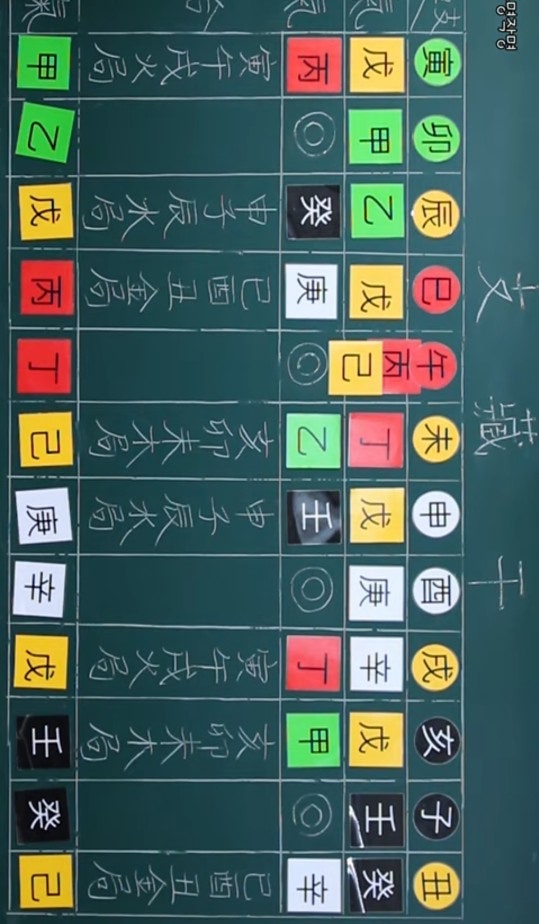 支藏干
支 寅 卯 辰 巳 午 未 申 酉 戌 亥 子 丑
氣 戊 甲 乙 戊 丙 己 丁 戊 庚 辛 戊 壬 癸
氣 丙 ◎ 癸 庚 ◎ 乙 壬 ◎ 丁 甲 ◎ 辛
合 寅午戌火局 申子辰水局 巳酉丑金局 亥卯未木局 申子辰水局 寅午戌火局 亥卯未木局 巳酉丑金局
氣 甲 乙 戊 丙 丁 己 庚 辛 戊 壬 癸 己